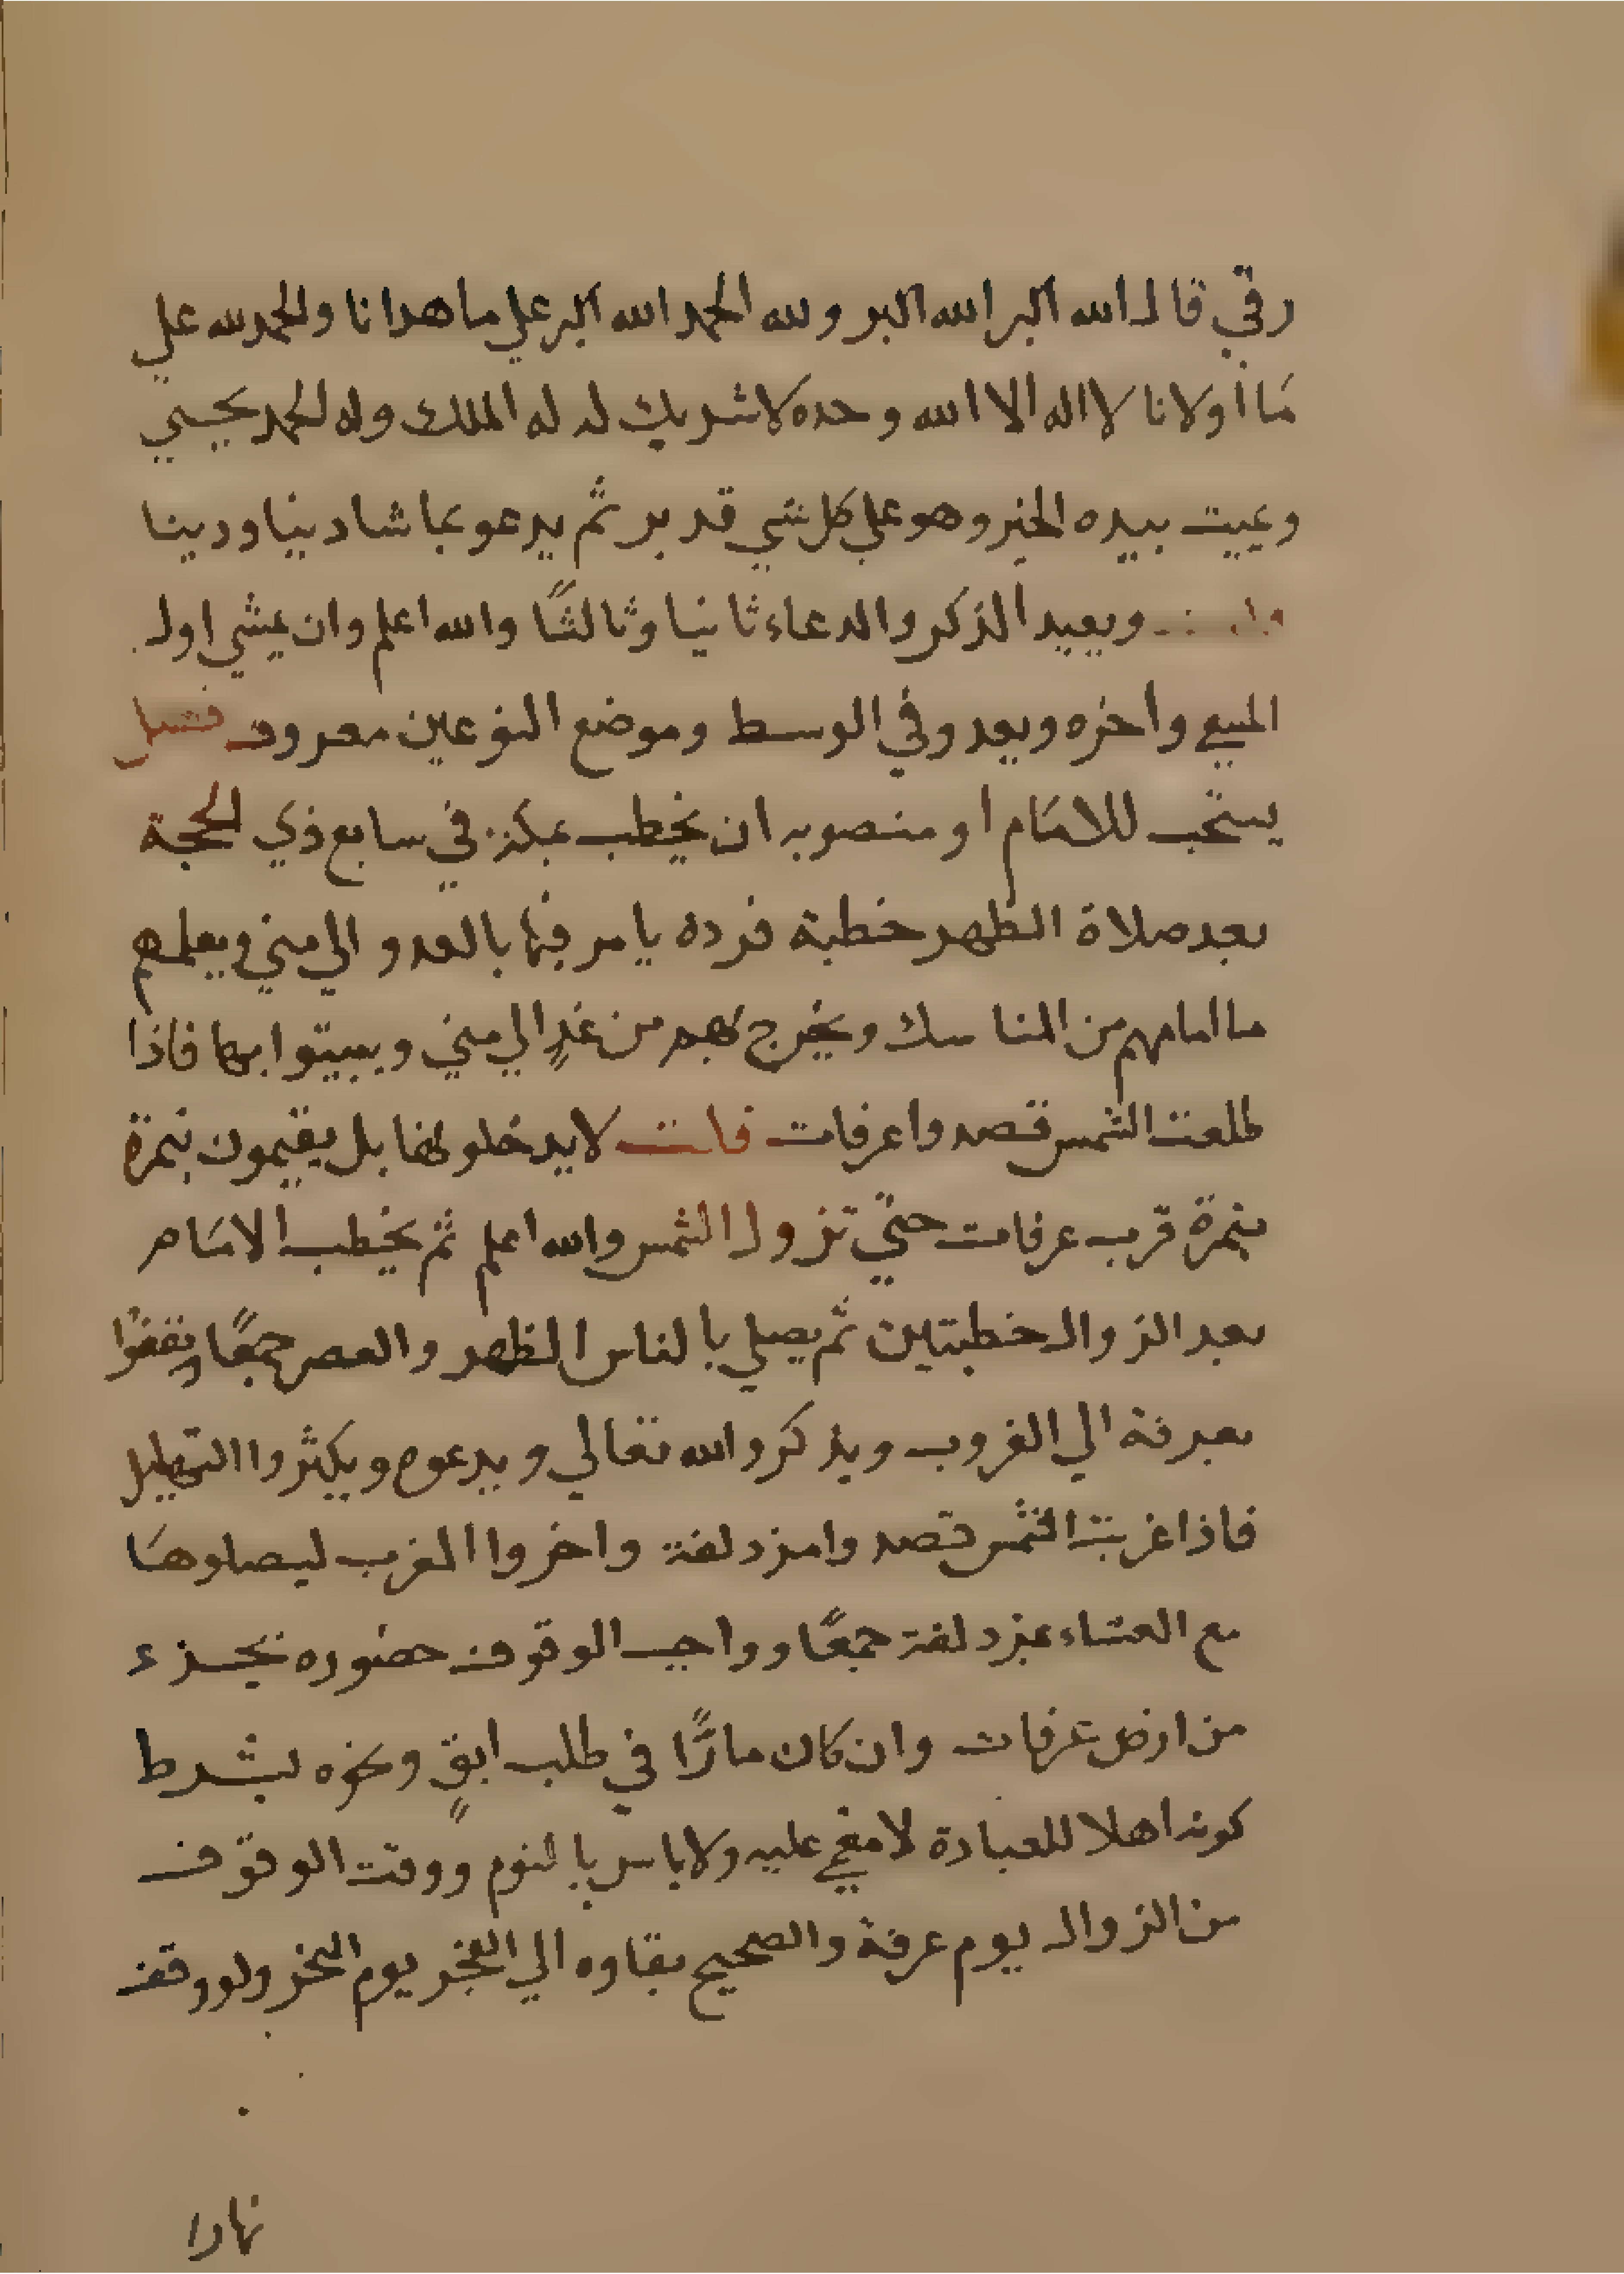 رقي قال الله اكبر الله اكبر ولله الحمد الله اكبر علي ما هدانا والحمد لله علي
مَا اولانا لا اله الا الله وحده لا شريك له له الملك وله الحمد يحيي
ويميت بيده الخير وهو علي كل شي قدير ثم يدعو بما شا دينا ودينا
قلت ويعيد الذكر والدعاء ثانيا وثالثًا والله اعلم وان يمشي اول
المسع واخره ويعد وفي الوسط وموضع النوعين معروف فصل
يستحب للامَام او منصوبه ان يخطب بمكة في سابع ذي الحجة
بعد صلاة الظهر خطبة فرده يامر فيها بالعدو الي مني ويعلمهم
ما امامهم من المناسك ويخرج بهم من غدٍ الي مني ويبيتوا بها فاذا
طلعت الشمس قصدوا عرفات قلت لا يدخلونها بل يقيمون بنمرة
بنمرة قرب عرفات حتي تزول الشمس والله اعلم ثم يخطب الامَام
بعد الزوال خطبتين ثم يصلي بالناس الظهر والعصر جمعًا ويقفوا
بعرفة الي الغروب ويذكروا الله تعالي ويدعوه ويكثروا التهليل
فاذا غربت الشمس قصدوا مزدلفة واخروا المغرب ليصلوهَا
مع العشاء بمزدلفة جمعًا وواجب الوقوف حضوره بجزء
من ارض عرفات وان كان مارًّا في طلب ابقٍ ونحوه بشرط
كونه اهلا للعبادة لا مغمي عليه ولا باس بالنوم ووقت الوقوف
من الزوال يوم عرفة والصحيح بقاوه الي الفجر يوم النحر ولو وقف
نهارا